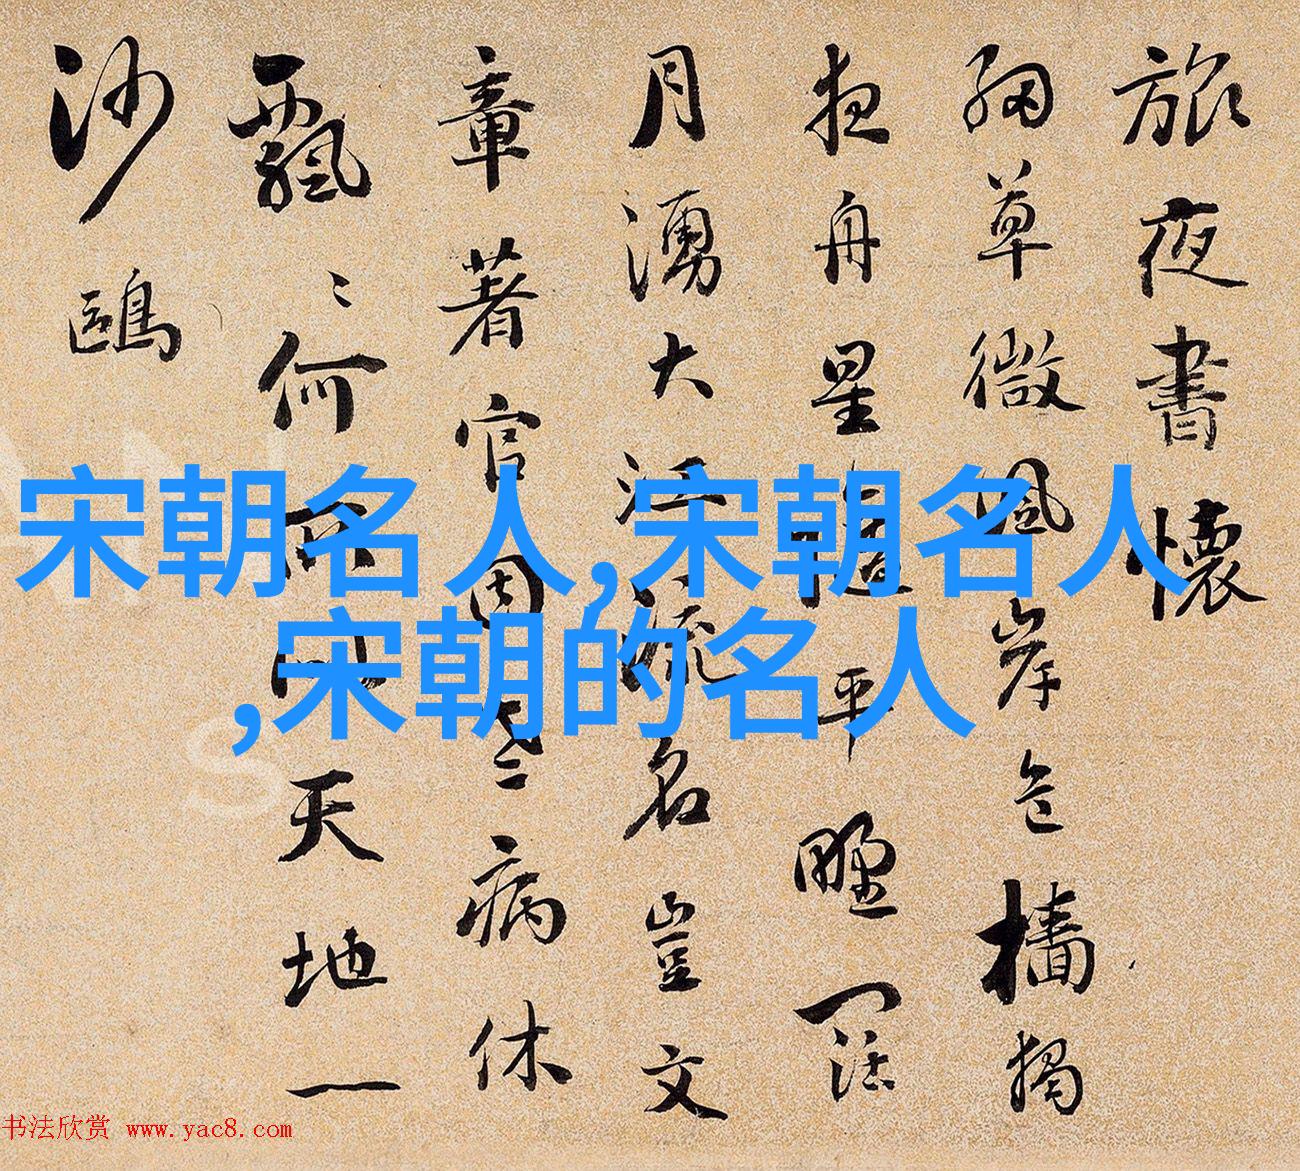 旅夜書懷
細草微風岸危檣獨
夜舟星平野闊
月湧大江流名豈文
章著官因老病休
飄〻何所似天地一
沙鷗
宋朝名人,宋朝名人
,宋朝的名人
书法欣赏 www.yac8.com